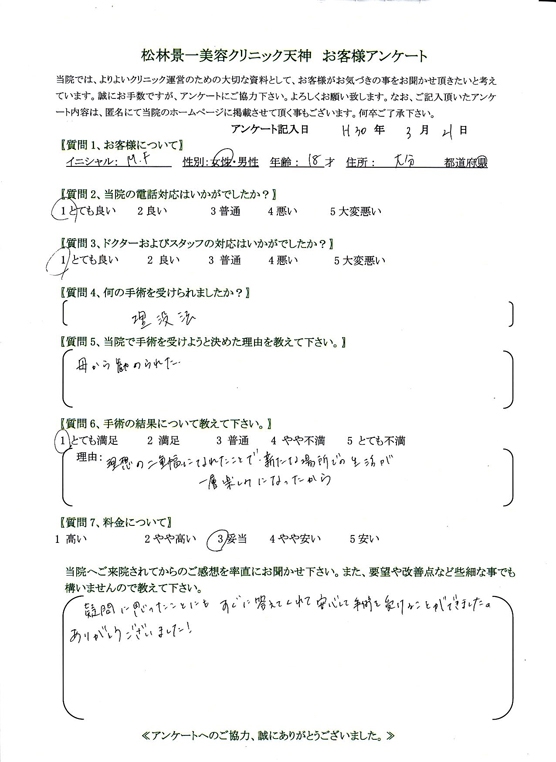 松林景一美容クリニック天神　お客様アンケート
当院では、よりよいクリニック運営のための大切な資料として、お客様がお気づきの事をお聞かせ頂きたいと考え
ています。誠にお手数ですが、アンケートにご協力下さい。よろしくお願い致します。なお、ご記入頂いたアンケ
ート内容は、匿名にて当院のホームページに掲載させて頂く事もございます。何卒ご了承下さい。
アンケート記入日　H30年　3月　21日
〖質問 1、お客様について〗
イニシャル：　M.F　性別：女性・男性　年齢：18才　住所：　大分　都道府県
〖質問 2、当院の電話対応はいかがでしたか？〗
1 とても良い　2 良い　3 普通　4 悪い　5 大変悪い
〖質問 3、ドクターおよびスタッフの対応はいかがでしたか？〗
1 とても良い　2 良い　3 普通　4 悪い　5 大変悪い
〖質問 4、何の手術を受けられましたか？〗
埋没法
〖質問 5、当院で手術を受けようと決めた理由を教えて下さい。〗
母から勧められた.
〖質問 6、手術の結果について教えて下さい。〗
1 とても満足　2 満足　3 普通　4 やや不満　5 とても不満
理由：理想の二重幅になれたことで、新たな場所での生活が
一層楽しみになったから
〖質問 7、料金について〗
1 高い　2 やや高い　3 妥当　4 やや安い　5 安い
当院へご来院されてからのご感想を率直にお聞かせ下さい。また、要望や改善点など些細な事でも
構いませんので教えて下さい。
疑問に思ったことにも すぐに答えてくれて 安心して手術を受けることができました。
ありがとうございました!
≪アンケートへのご協力、誠にありがとうございました。≫